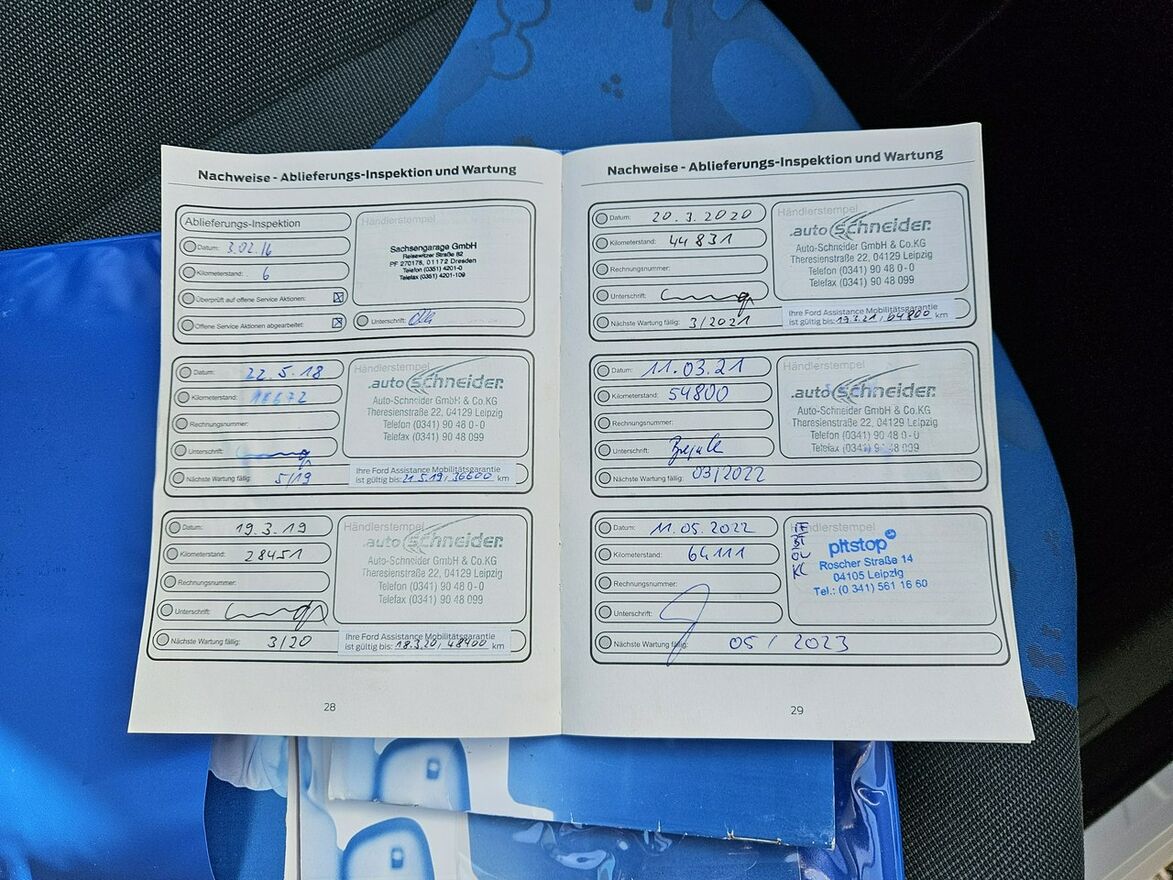 Nachweise - Ablieferungs-Inspektion und Wartung
Ablieferungs-Inspektion
Datum: 3.02.16
Kilometerstand: 6
Überprüft auf offene Service Aktionen:
Offene Service Aktionen abgearbeitet:
Händlerstempel
Sachsengarage GmbH
Reisewitzer Straße 82
PF 270178, 01172 Dresden
Telefon (0351) 4201-0
Telefax (0351) 4201-109
Unterschrift:
Datum: 22.5.18
Kilometerstand:
Rechnungsnummer:
Unterschrift:
Nächste Wartung fällig: 5/19
Händlerstempel
.auto Schneider.
Auto-Schneider GmbH & Co.KG
Theresienstraße 22, 04129 Leipzig
Telefon (0341) 90 48 0-0
Telefax (0341) 90 48 099
Ihre Ford Assistance Mobilitätsgarantie
ist gültig bis: 21.5.19, 36600 km
Datum: 19.3.19
Kilometerstand: 28451
Rechnungsnummer:
Unterschrift:
Nächste Wartung fällig: 3/20
Händlerstempel
.auto Schneider.
Auto-Schneider GmbH & Co.KG
Theresienstraße 22, 04129 Leipzig
Telefon (0341) 90 48 0-0
Telefax (0341) 90 48 099
Ihre Ford Assistance Mobilitätsgarantie
ist gültig bis: 18.3.20, 48400 km
28
Nachweise - Ablieferungs-Inspektion und Wartung
Datum: 20.3.2020
Kilometerstand: 44831
Rechnungsnummer:
Unterschrift:
Nächste Wartung fällig: 3/2021
Händlerstempel
.auto Schneider.
Auto-Schneider GmbH & Co.KG
Theresienstraße 22, 04129 Leipzig
Telefon (0341) 90 48 0-0
Telefax (0341) 90 48 099
Ihre Ford Assistance Mobilitätsgarantie
ist gültig bis: 19.3.21, 64800 km
Datum: 11.03.21
Kilometerstand: 54800
Rechnungsnummer:
Unterschrift:
Nächste Wartung fällig: 03/2022
Händlerstempel
.auto Schneider.
Auto-Schneider GmbH & Co.KG
Theresienstraße 22, 04129 Leipzig
Telefon (0341) 90 48 0-0
Telefax (0341) 90 48 099
Datum: 11.05.2022
Kilometerstand: 64111
Rechnungsnummer:
Unterschrift:
Nächste Wartung fällig: 05/2023
Händlerstempel
pitstop
Roscher Straße 14
04105 Leipzig
Tel.: (0 341) 561 16 60
29